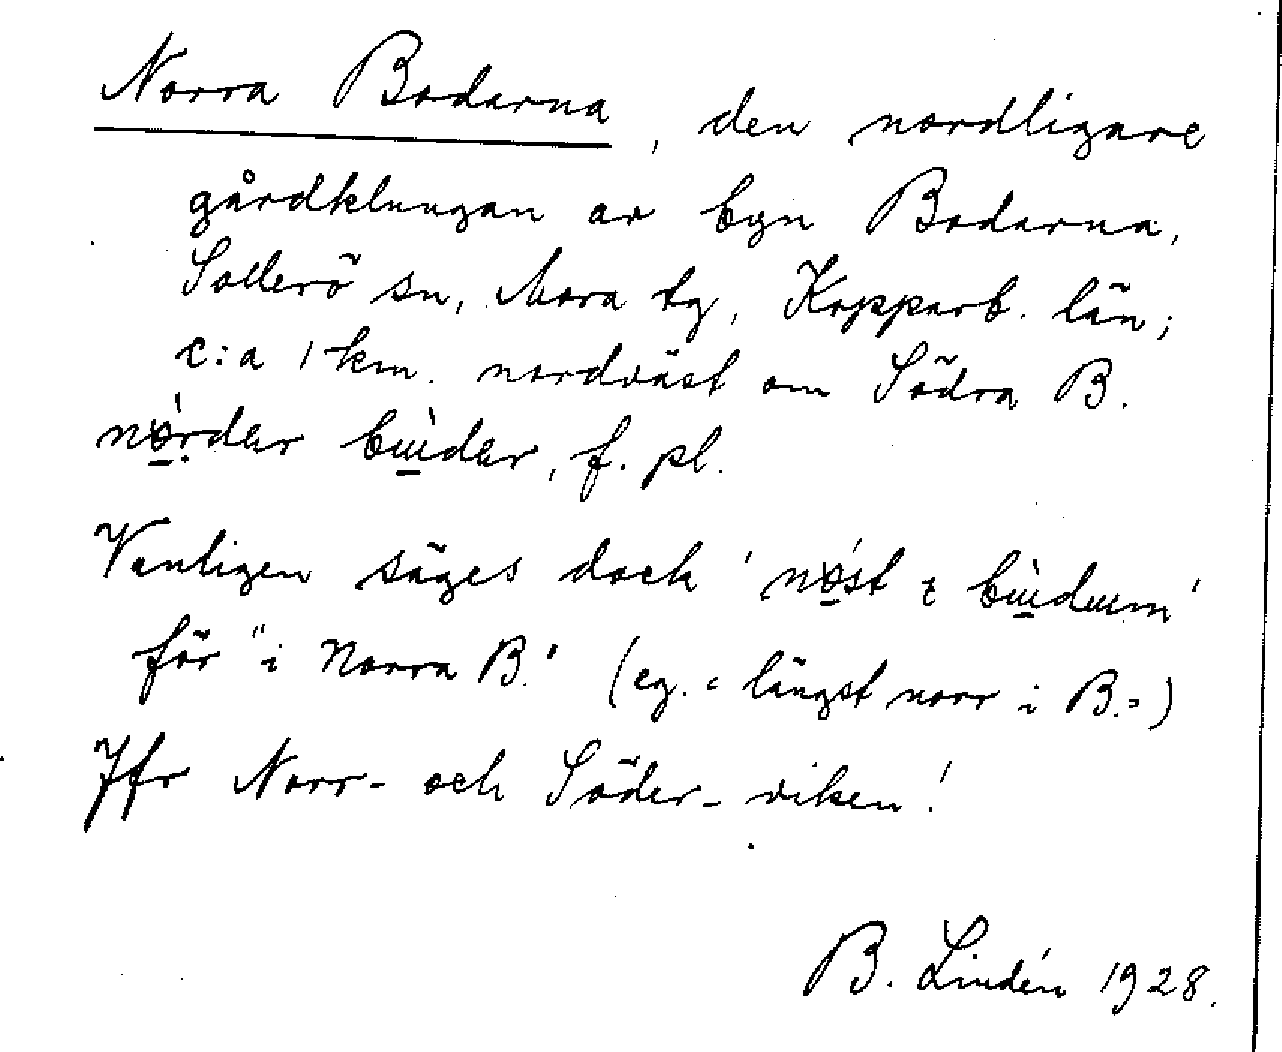 Norra Bodarna, den nordligare
gårdklungan av byn Bodarna,
Sollerö sn, Mora tg, Kopparb. län;
c:a 1 km. nordväst om Södra B.
nòrdär bùdär, f. pl.
Vanligen säges dock 'nóst i bùdum'
för "i Norra B." (eg. = längst norr i B. =)
Jfr Norr- och Söder-viken!
B. Lindén 1928.